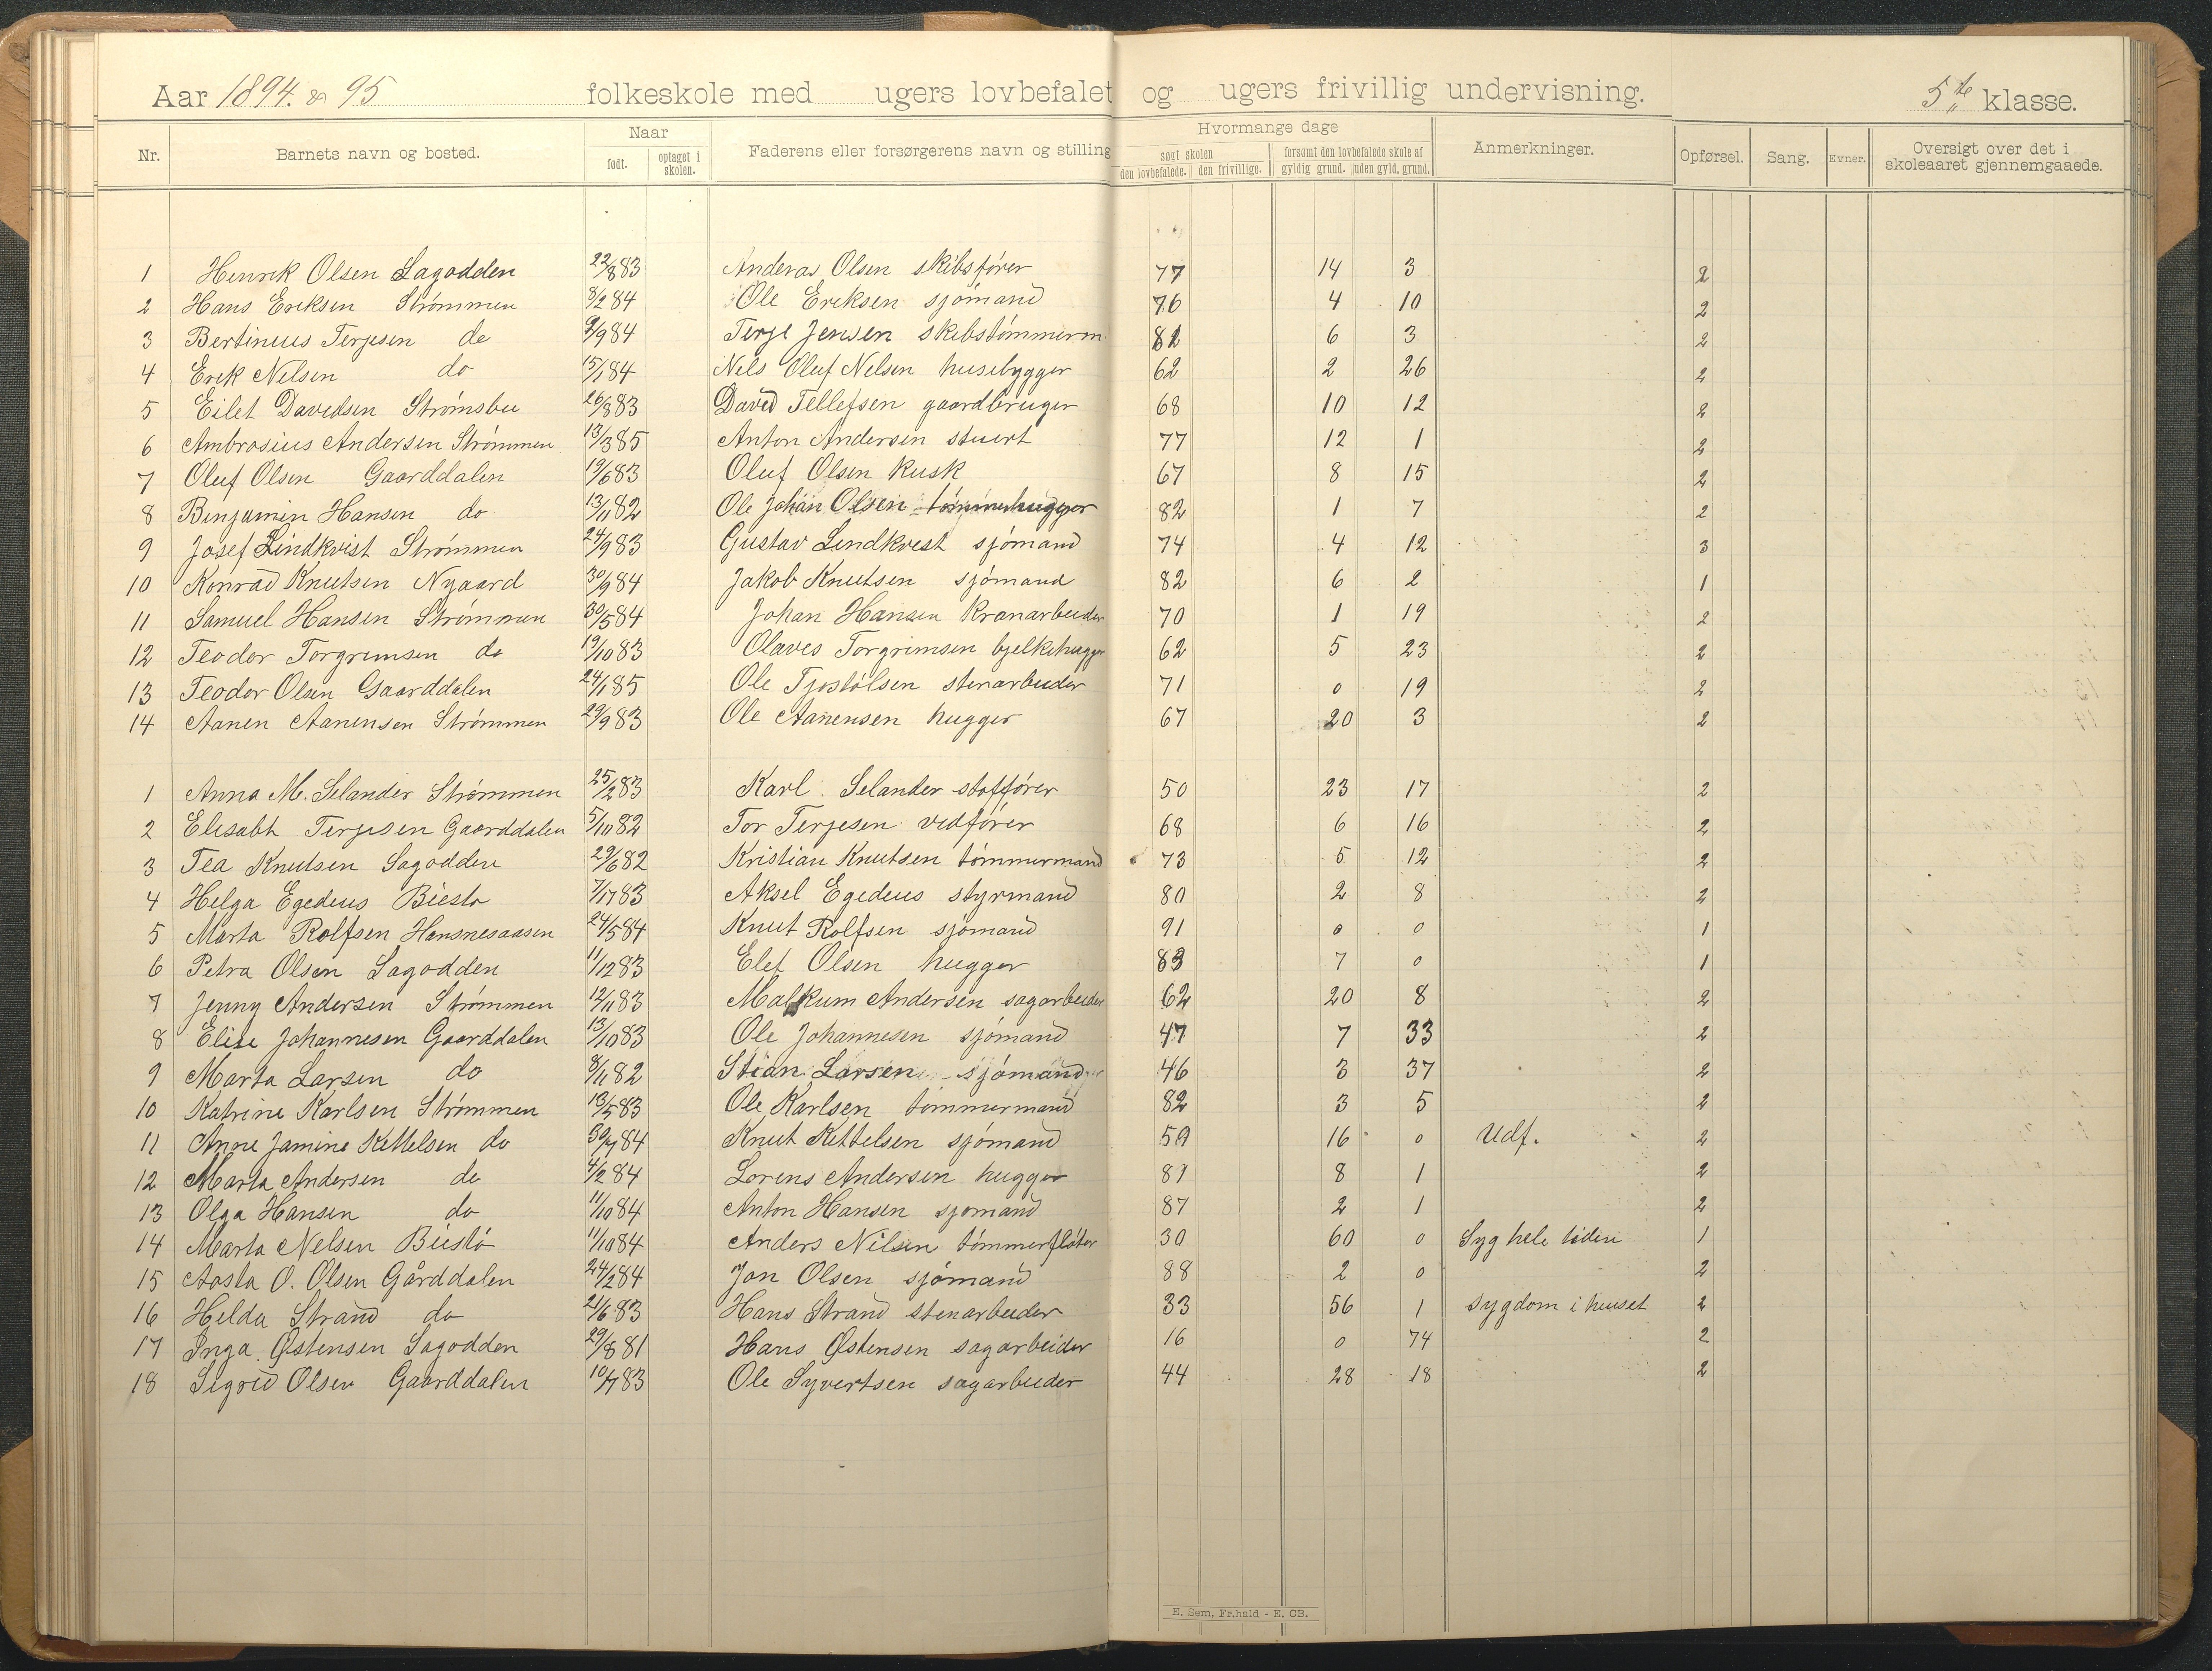 Aar 1894. & 95 folkeskole med ugers lovbefalet og ugers frivillig undervisning. 5te klasse.
Nr. Barnets navn og bosted. Naar født. optaget i skolen. Faderens eller forsørgerens navn og stilling Hvormange dage søgt skolen den lovbefalede. den frivillige. forsømt den lovbefalede skole af gyldig grund. uden gyld. grund. Anmerkninger. Opførsel. Sang. Evner. Oversigt over det i skoleaaret gjennemgaaede.
1 Henrik Olsen Sagodden 22/8 83 Anderas Olsen skibsfører 77 14 3 2
2 Hans Eriksen Strømmen 8/2 84 Ole Eriksen sjømand 76 4 10 2
3 Bertinius Terjesen do 9/9 84 Terje Jensen skibstømmerm. 82 6 3 2
4 Erik Nilsen do 15/1 84 Nils Oluf Nilsen husebygger 62 2 26 2
5 Eilet Davidsen Strømsbu 26/8 83 David Tellefsen gaardbruger 68 10 12 2
6 Ambrosius Andersen Strømmen 13/3 85 Anton Andersen stuert 77 12 1 2
7 Oluf Olsen Gaarddalen 19/6 83 Oluf Olsen kusk 67 8 15 2
8 Benjamin Hansen do 13/11 82 Ole Johan Olsen tømmerhugger 82 1 7 2
9 Josef Lindkvist Strømmen 24/9 83 Gustav Lindkvist sjømand 74 4 12 3
10 Konrad Knutsen Nygaard 30/9 84 Jakob Knutsen sjømand 82 6 2 1
11 Samuel Hansen Strømmen 30/5 84 Johan Hansen kranarbeider 70 1 19 2
12 Teodor Torgrimsen do 19/10 83 Olaves Torgrimsen bjelkehugger 62 5 23 2
13 Teodor Olsen Gaarddalen 24/1 85 Ole Tjostølsen stenarbeider 71 0 19 2
14 Aanen Aanensen Strømmen 29/9 83 Ole Aanensen hugger 67 20 3 2
1 Anna M. Selander Strømmen 25/2 83 Karl Selander stoffører 50 23 17 2
2 Elisabt Terjesen Gaarddalen 5/10 82 Tor Terjesen vedfører 68 6 16 2
3 Tea Knutsen Sagodden 29/6 82 Kristian Knutsen tømmermand 73 5 12 2
4 Helga Egedius Biestø 7/17 83 Aksel Egedius styrmand 80 2 8 2
5 Marta Rolfsen Hansnesaasen 24/5 84 Knut Rolfsen sjømand 91 0 0 1
6 Petra Olsen Sagodden 11/12 83 Elef Olsen hugger 83 7 0 1
7 Jenny Andersen Strømmen 12/11 83 Malkum Andersen sagarbeider 62 20 8 2
8 Elise Johannesen Gaarddalen 13/10 83 Ole Johannesen sjømand 47 7 33 2
9 Marta Larsen do 8/11 82 Stian Larsen sjømand 46 3 37 2
10 Katrine Karlsen Strømmen 18/5 83 Ole Karlsen tømmermand 82 3 5 2
11 Anne Jamine Kettelsen do 30/7 84 Knut Kettelsen sjømand 59 16 0 Udf. 2
12 Marta Andersen do 4/2 84 Lorens Andersen hugger 81 8 1 2
13 Olga Hansen do 11/10 84 Anton Hansen sjømand 87 2 1 2
14 Marta Nelsen Biestø 11/10 84 Anders Nilsen tømmerfløter 30 60 0 Syg hele tiden 1
15 Aasta O. Olsen Gårddalen 24/2 84 Jon Olsen sjømand 88 2 0 2
16 Helda Strand do 21/6 83 Hans Strand stenarbeider 33 56 1 sygdom i huset 2
17 Inga Østensen Sagodden 29/8 81 Hans Østensen sagarbeider 16 0 74 2
18 Sigrid Olsen Gaarddalen 10/7 83 Ole Syvertsen sagarbeider 44 28 18 2
E. Sem, Fr.hald - E. CB.